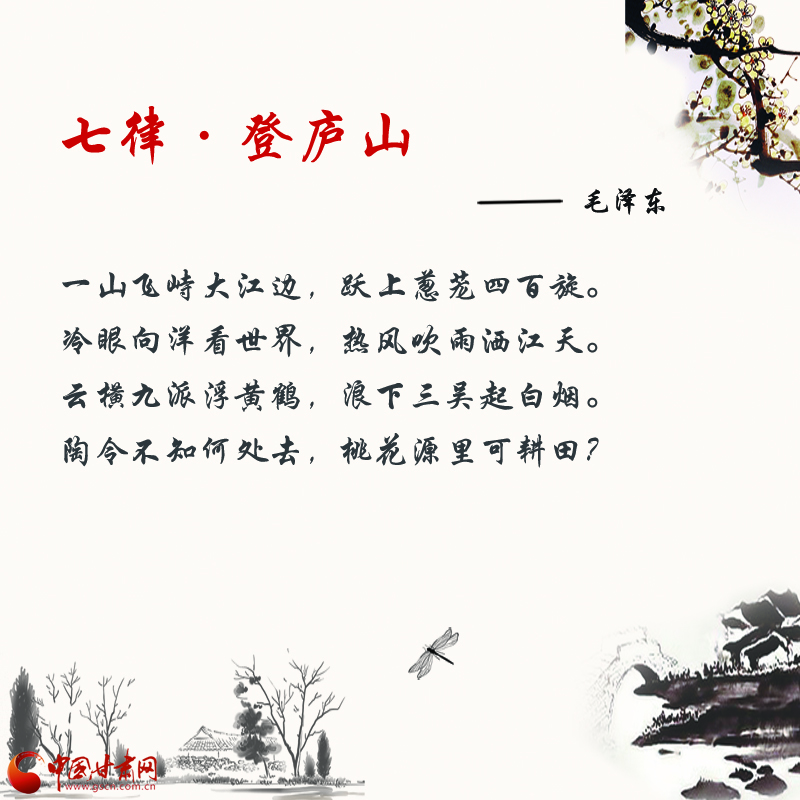 七律·登庐山
—— 毛泽东
一山飞峙大江边，跃上葱茏四百旋。
冷眼向洋看世界，热风吹雨洒江天。
云横九派浮黄鹤，浪下三吴起白烟。
陶令不知何处去，桃花源里可耕田？
中国甘肃网
www.gscn.com.cn